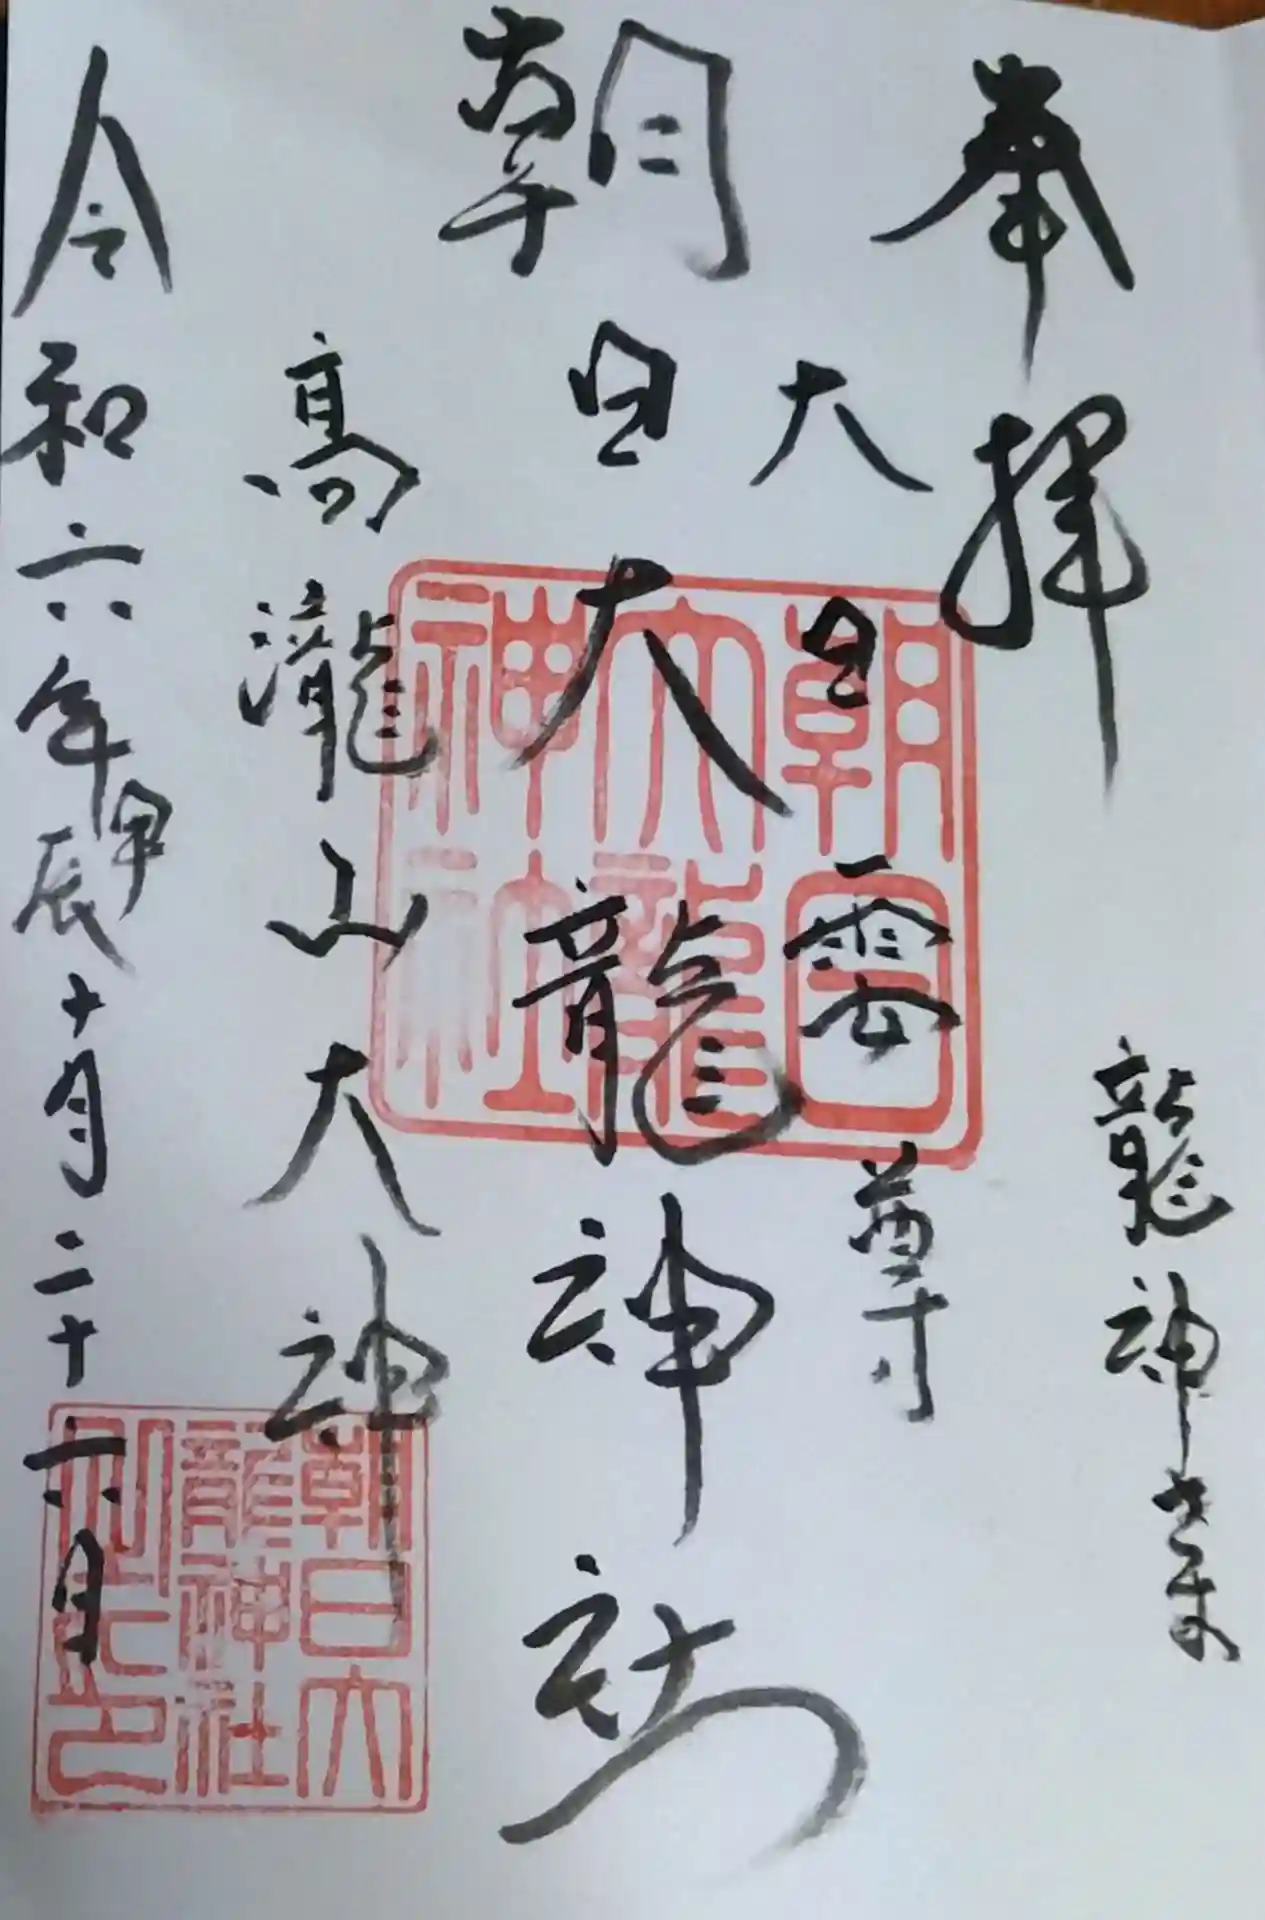 奉拝
龍神
大日雲尊
朝日大龍神社
高瀧山大神
令和六年甲辰十月二十六日
朝日
大龍
神社
朝日大
龍神社
之印